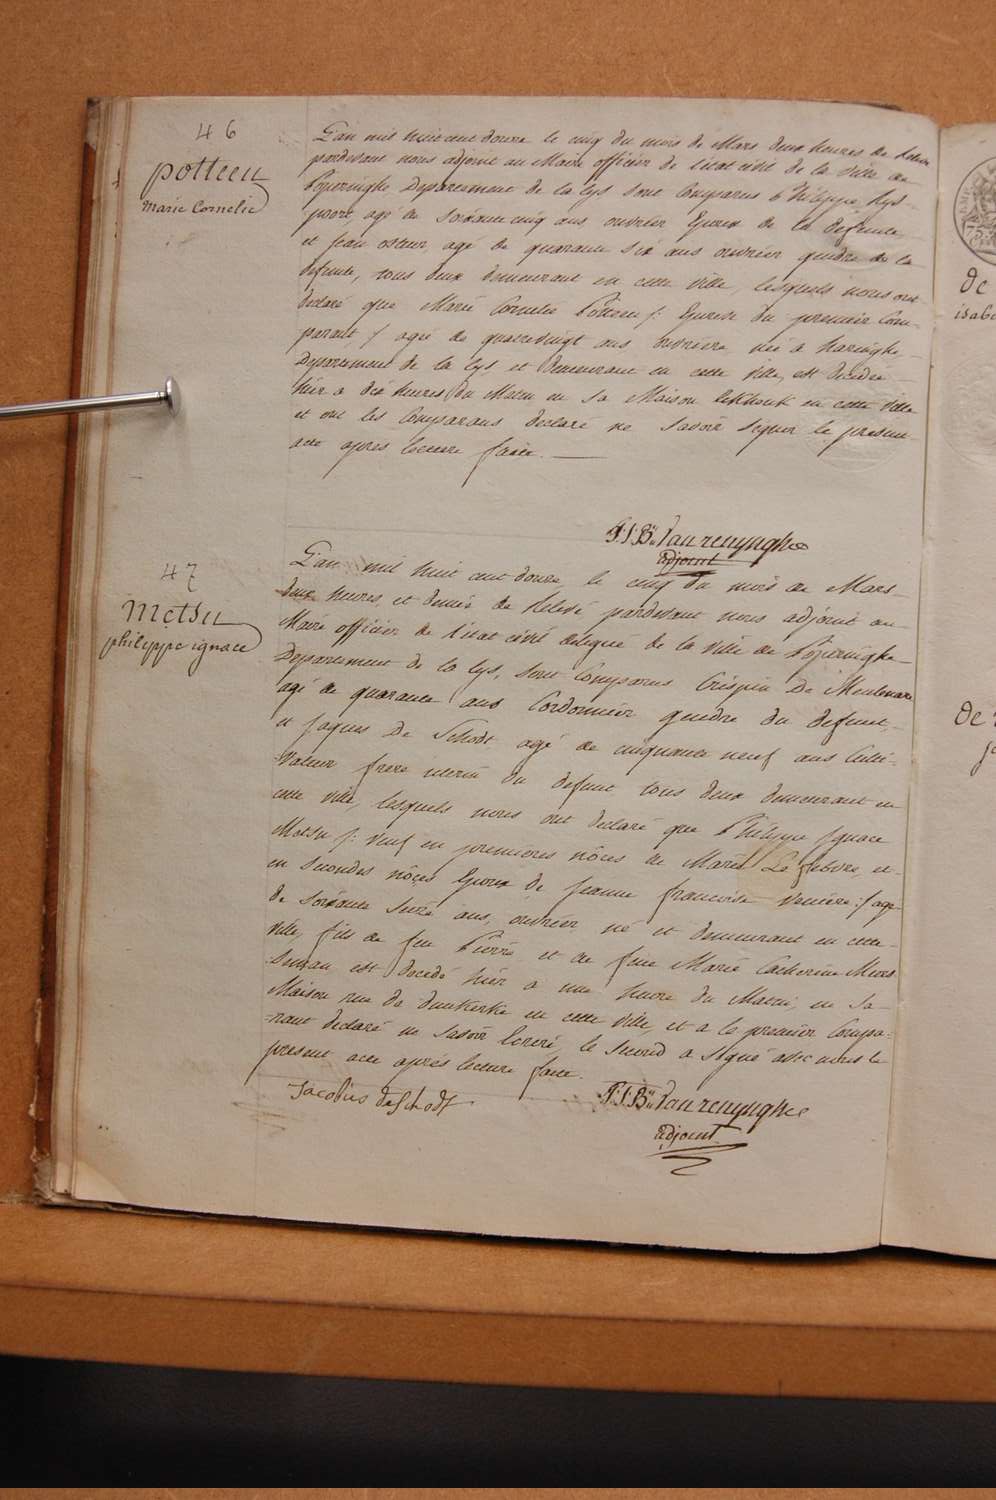 46
potteeu
Marie Cornelie
L'an mil huit cent douze le cinq du mois de Mars deux heures de Relevé
pardevant nous adjoint au Maire officier de l'etat civil de la ville de
Poperinghe Departement de la Lys sont Comparus Philippe Rys-
poort agé de soixante cinq ans, ouvrier Epoux de la defunte
et jean osteur, agé de quarante six ans ouvrier gendre de la
defunte, tous deux demeurant en cette ville, lesquels nous ont
declaré que Marie Cornelie Potteeu /: Epouse du premier Com-
parant / agée de quatrevingt ans ouvrière née à Haringhe
Departement de la Lys et demeurant en cette ville, est décédée
hier a dix heures du Matin en sa Maison en cette ville
et ont les Comparans declaré ne savoir signer le present
acte apres lecture faite.
P:J:B:u Vanrenynghe
adjoint
47
Metsu
philippe ignace
L'an mil huit cent douze, le cinq du mois de Mars
deux heures, et demie de Relevé pardevant nous adjoint au
Maire officier de l'etat civil delegué de la ville de Poperinghe
Departement de la Lys, sont Comparus Crispin De Meulenare
agé de quarante ans Cordonnier gendre du defunt,
et jaques De Schodt agé de cinquante neuf ans Culti-
vateur frere uterin du defunt tous deux demeurant en
cette ville, lesquels nous ont declaré que Philippe Ignace
Metsu /: veuf en premieres nôces de Marie Le febvre, et
en secondes nôces Epoux de jeanne francoise Veniere :/ age
de soixante seize ans, ouvrier né et demeurant en cette
ville, fils de feu Pierre et de feue Marie Catherine
est decedé hier a une heure du Matin, en sa
Maison rue de dunkerke en cette ville, et a le premier Compa=
=rant declaré ne savoir ecrire, le second a signé avec nous le
present acte aprés lecture faite.
Jacobus de Schodt
P:J:B:u Vanrenynghe
adjoint
de
isab
de
j